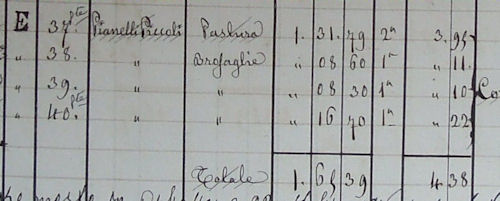 E 37.pte Pianelli Piccoli Pastura 1. 31. 79 2a 3. 95
" 38. " " 08 60 1a " 11.
" 39. " " " 08 30 1a " 10
" 40.pte " " " 16 70 1a " 22
Totale 1. 65 39 4 38